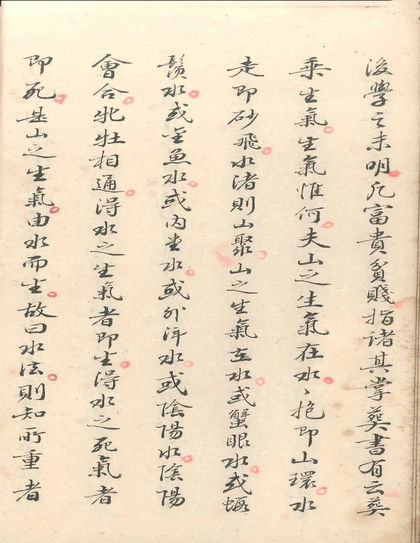 後學之未明凡富貴貧賤指諸其掌葬書有云葬
乘生氣生氣惟何夫山之生氣在水〻抱即山環水
走即砂飛水渚則山聚山之生氣在水或蟹眼水或蝦
鬚水或金魚水或內堂水或外洋水或陰陽水陰陽
會合牝牡相通得水之生氣者即生得水之死氣者
即死是山之生氣由水而生故曰水法則知所重者